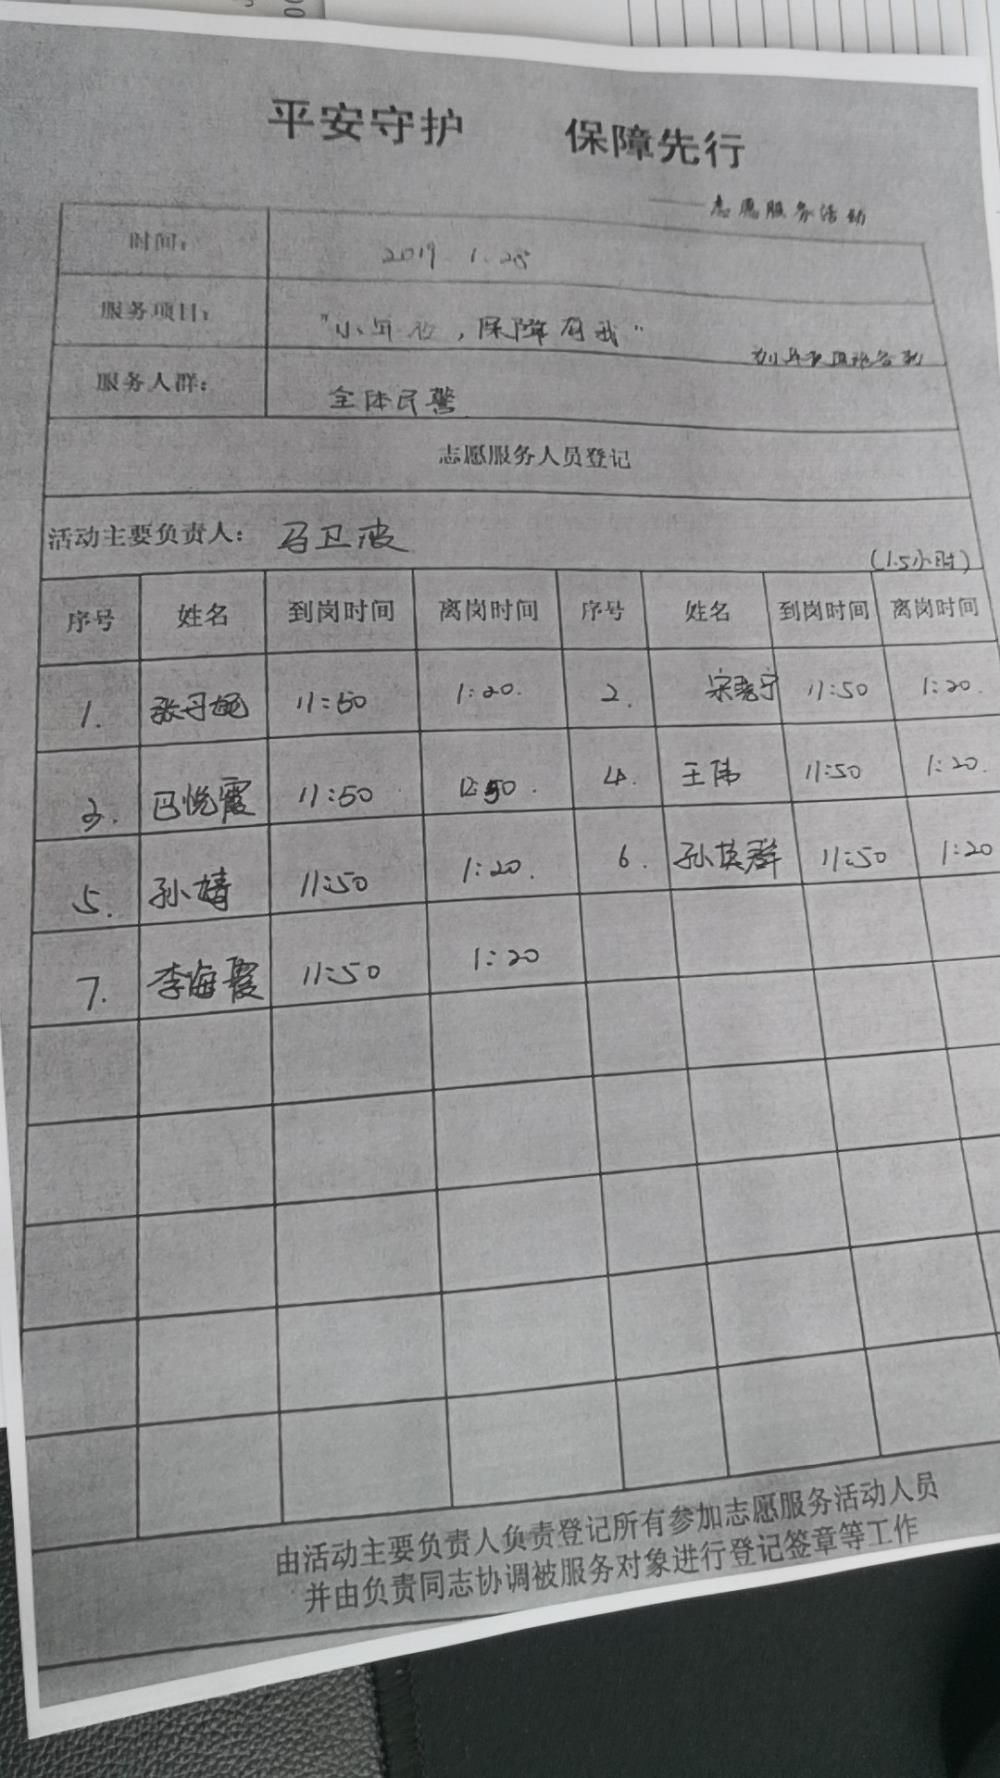 平安守护 保障先行
——志愿服务活动
时间： 2019.1.28
服务项目： "小年夜，保障有我"
服务人群： 全体民警
志愿服务人员登记
活动主要负责人： 马卫波
(1.5小时)
序号 姓名 到岗时间 离岗时间 序号 姓名 到岗时间 离岗时间
1. 张丹妮 11:50 1:20. 2. 宋宁 11:50 1:20.
3. 马悦霞 11:50 12:50. 4. 王伟 11:50 1:20.
5. 孙婧 11:50 1:20. 6. 孙英群 11:50 1:20
7. 李海霞 11:50 1:20
由活动主要负责人负责登记所有参加志愿服务活动人员
并由负责同志协调被服务对象进行登记签章等工作